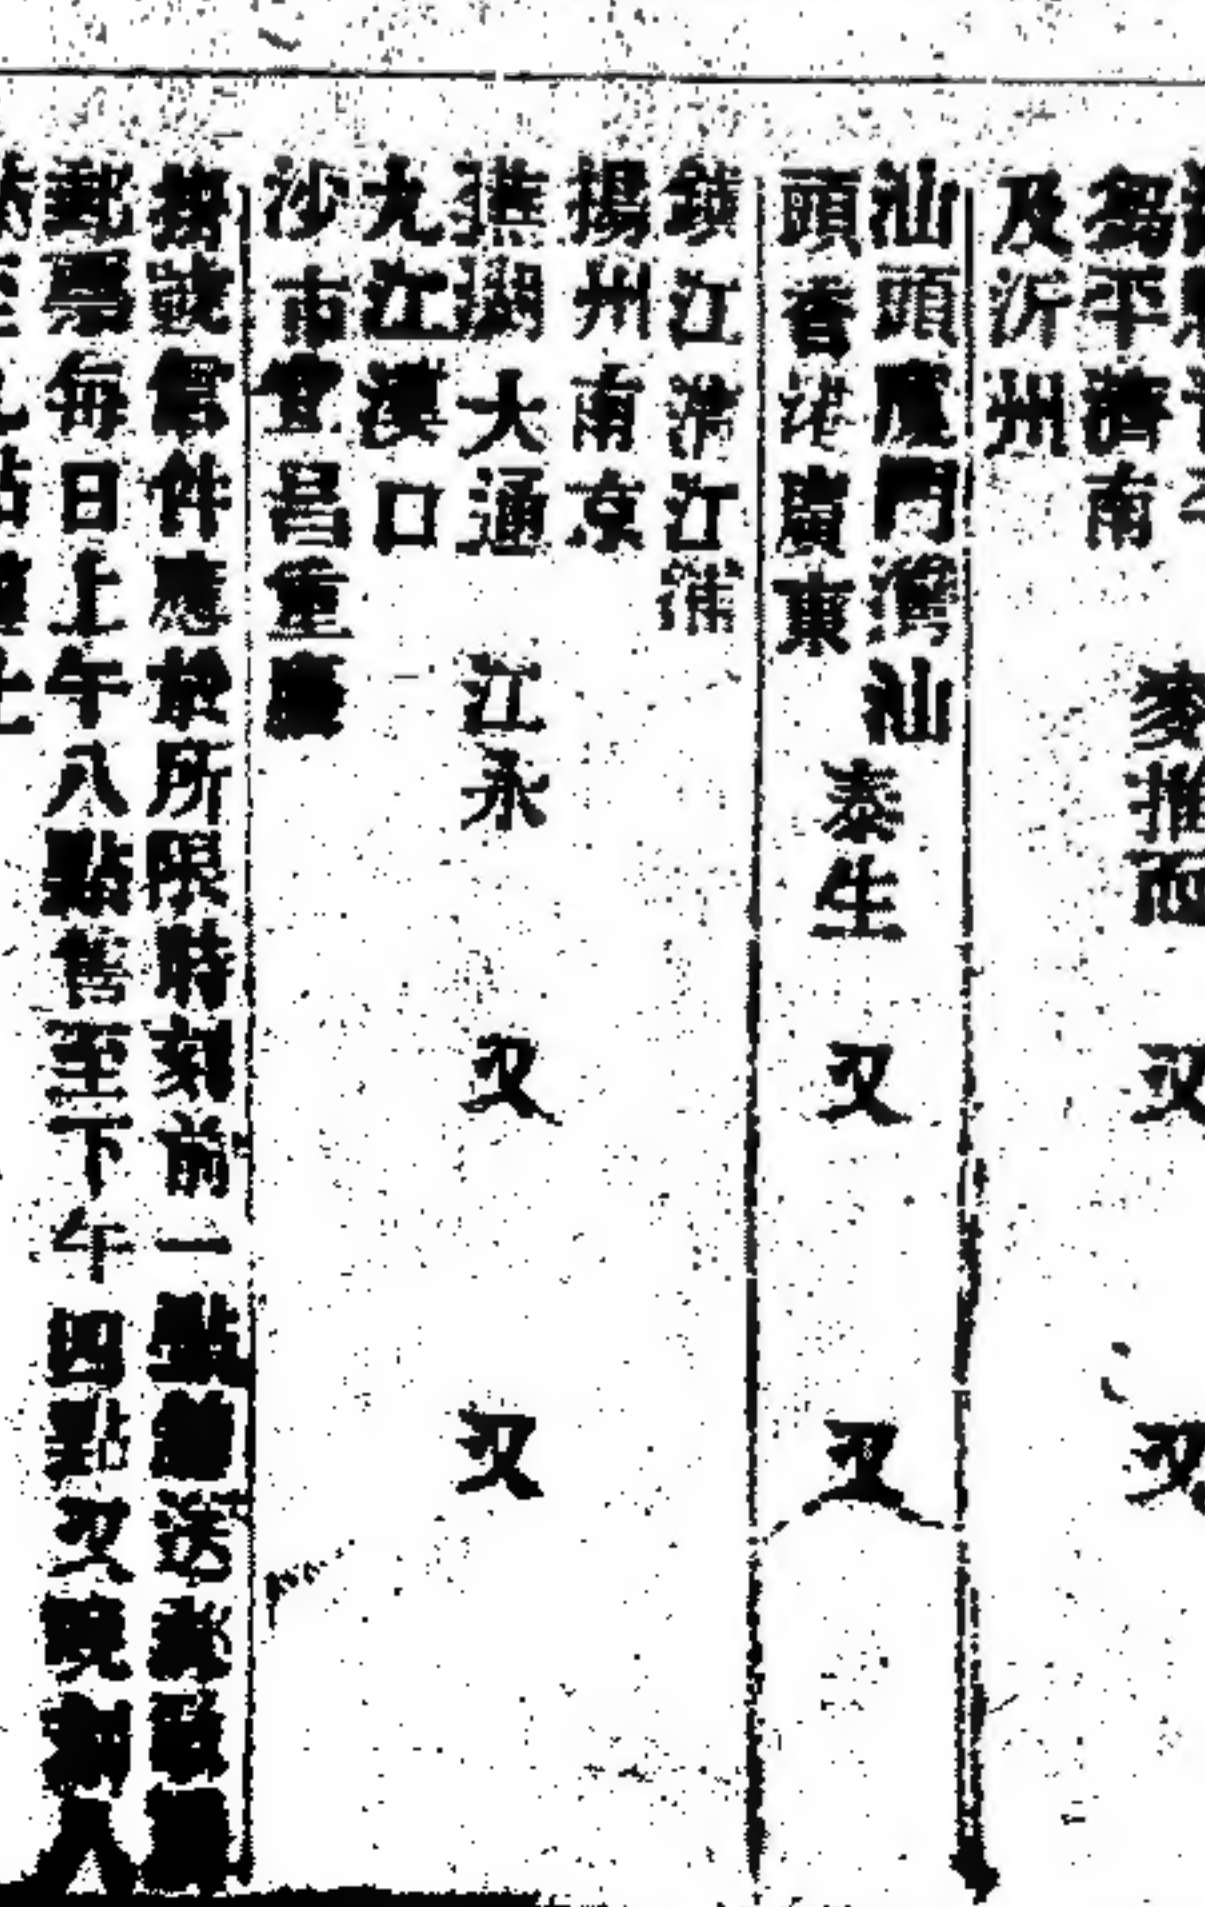 平濟南
及沂州
麥推而
又
又
汕頭廈門灣汕
頭香港廣東
泰生
又
又
鎮江清江浦
揚州南京
蕪湖大通
九江漢口
沙市宜昌重慶
江永
又
又
掛號信件應於所限時刻前一點鐘送
郵票每日上午八點售至下午四點又晚八